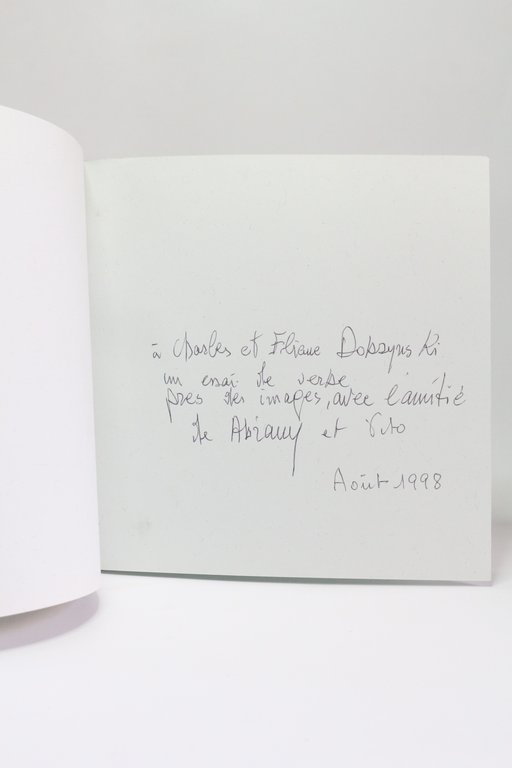 à Charles et Eliane Dobzynski
un essai de verbe
près des images, avec l'amitié
de Abirami et Vito
Août 1998